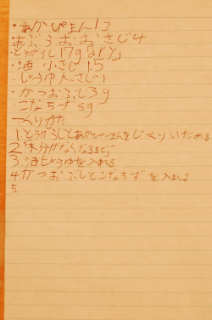 ・あかぴまん1コ
あぶらおおさじ4
とうがらし17g
・酒 小さじ1.5
・しょうゆ大さじ1
・かつおぶし3g
・こなちーず5g
つくりかた
1とうがらしとあかぴーまんをじっくりいためる
2水分がなくなるまで
3.酒としょうゆを入れる
4かつおぶしとこなちーずを入れる
5.